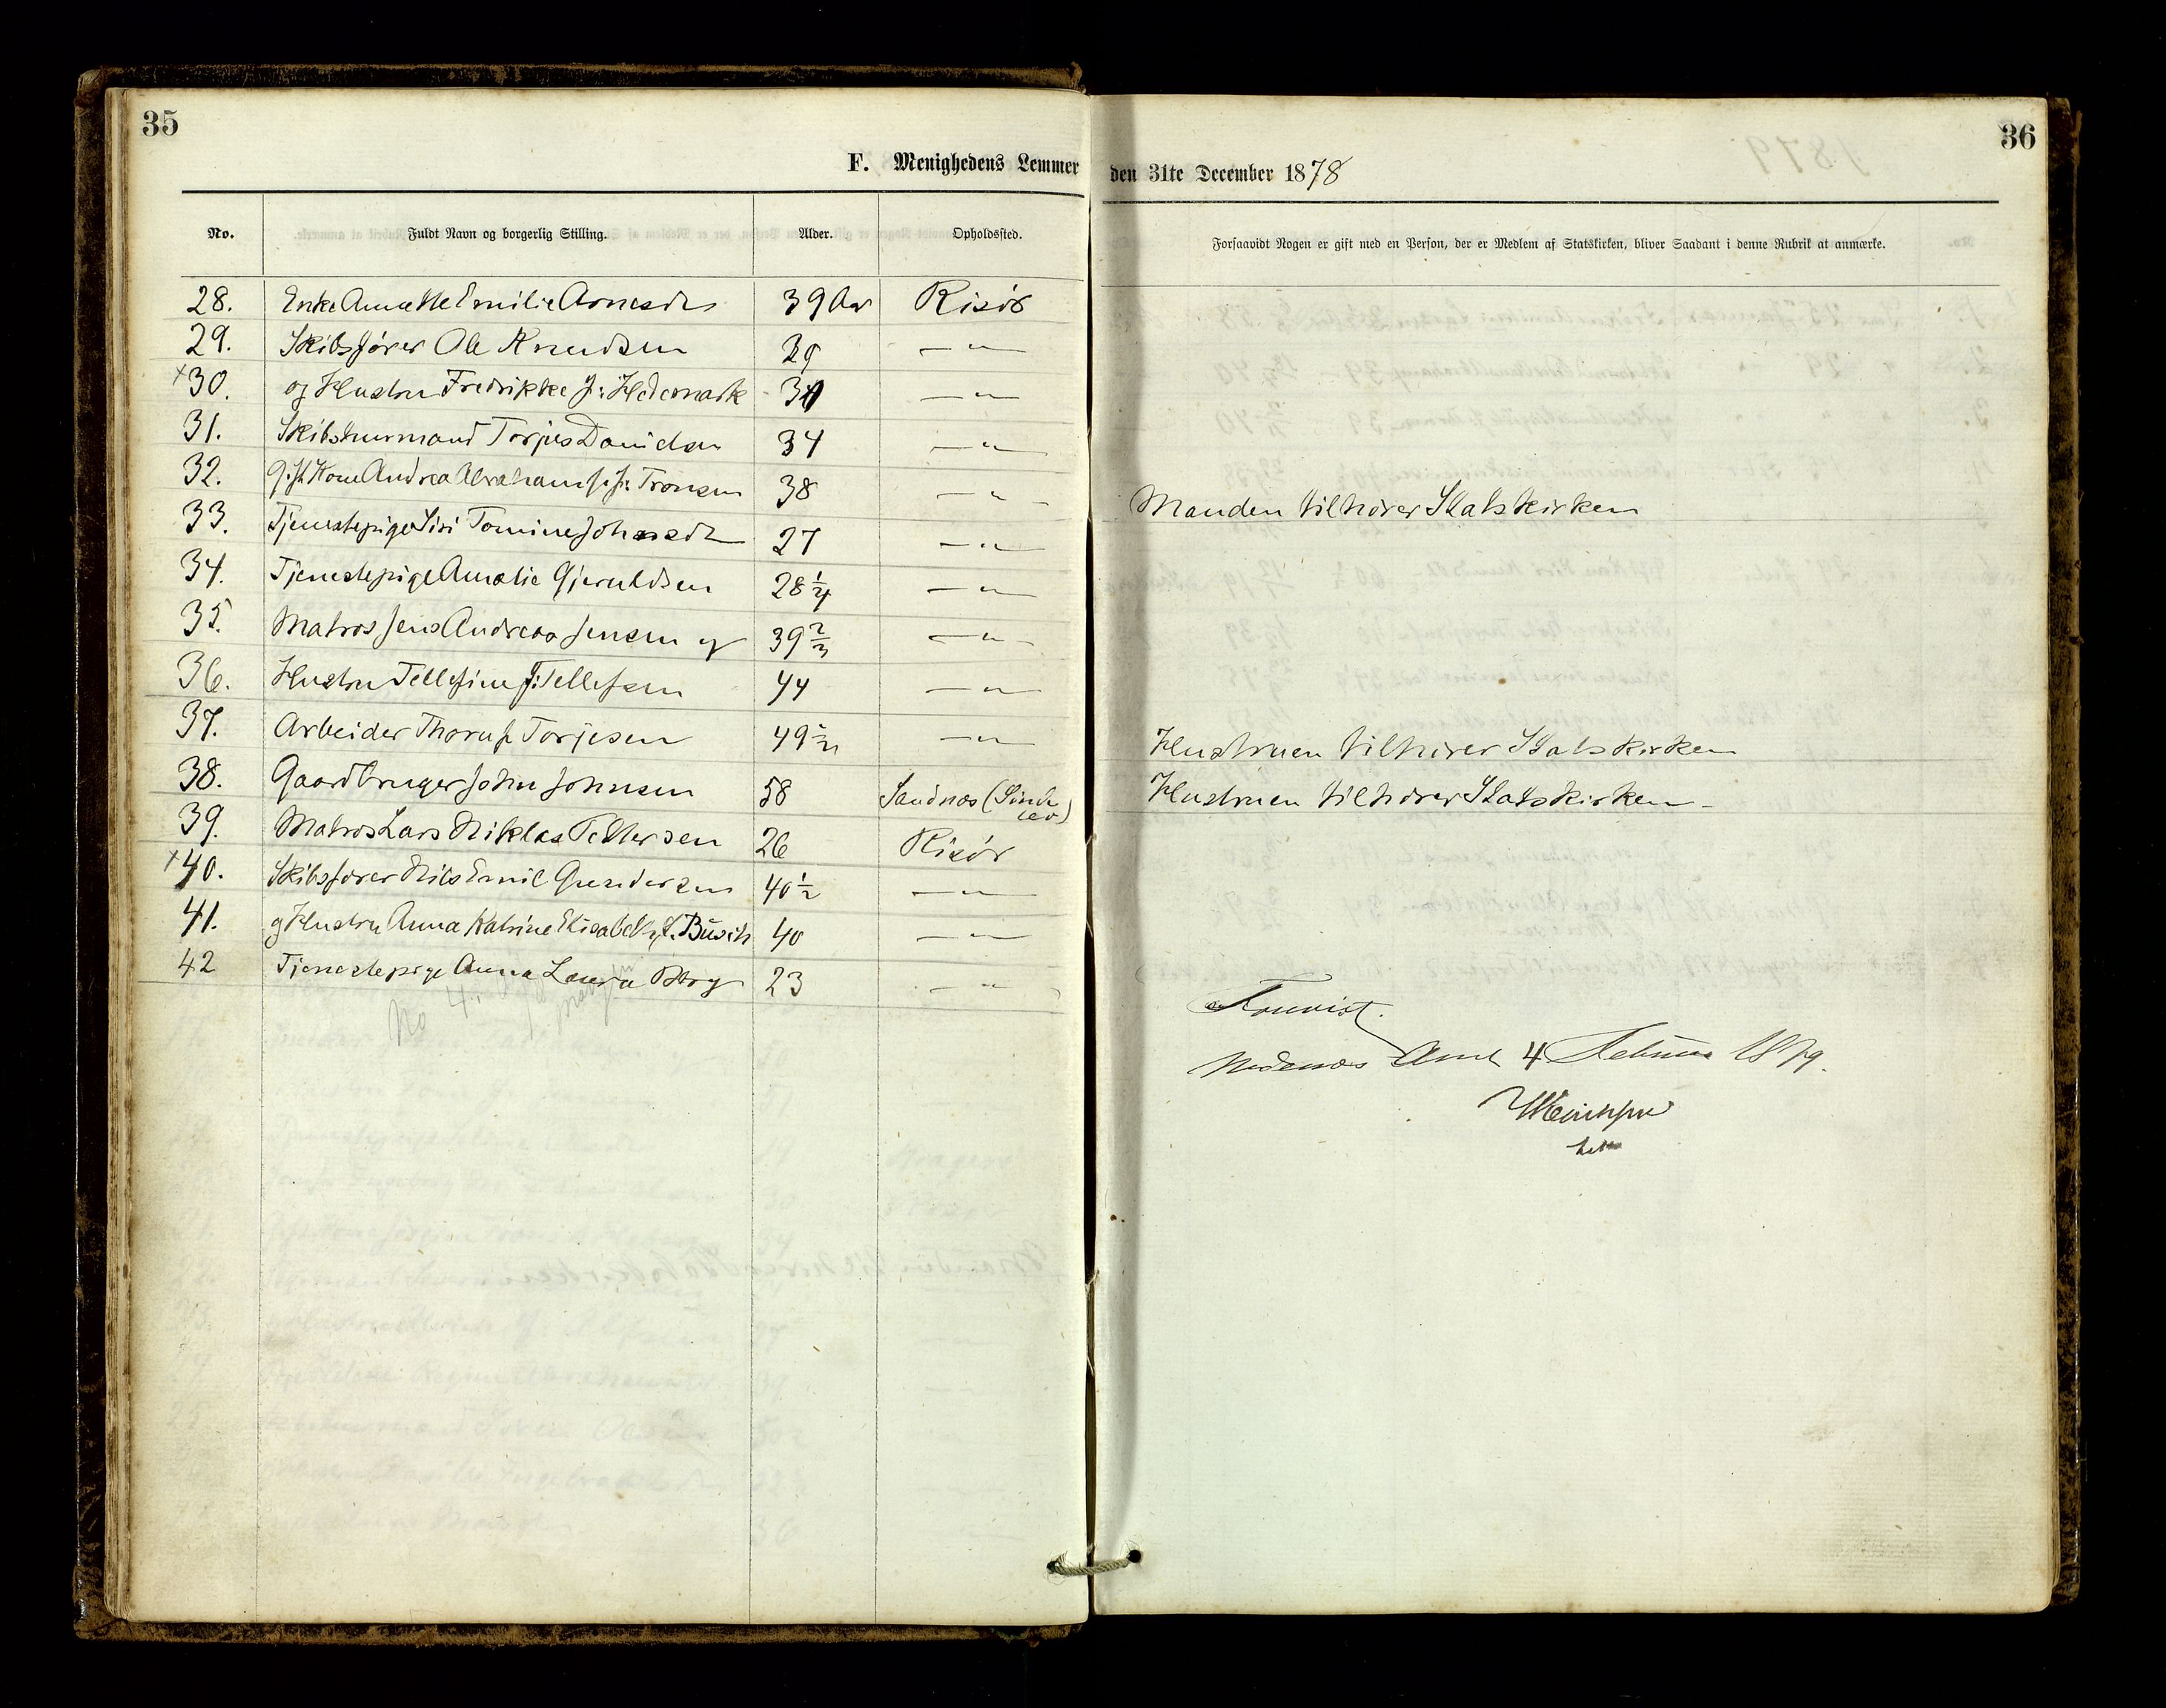 35
36
F. Menighedens Lemmer den 31te December 1878
No. Fuldt Navn og borgerlig Stilling. Alder. Opholdssted. Forsaavidt Nogen er gift med en Person, der er Medlem af Statskirken, bliver Saadant i denne Rubrik at anmærke.
28. Enke Annette Emilie Arnesdtr 39 Aar Risör
29. Skibsfører Ole Knudsen 39 — " —
+30. og Hustru Fredrikke f: Hedemark — " —
31. Skibstumrmand Torjus Danielsen 34 — " —
32. gift Kone Andrea Abrahamse f: Tronsen 38 — " — Manden tilhører Statskirken
33. Tjenestepige Siri Tomine Johnsdtr 27 — " —
34. Tjenestepige Amalie Gjeruldsen 28 1/4 — " —
35. Matros Jens Andreas Jensen og 39 2/3 — " —
36. Hustru Tellefine f: Tellefsen 44 — " —
37. Arbeider Thoruf Torjesen 49 — " — Hustruen tilhører Statskirken
38. Gaardbruger John Johnsen 58 Sandnæs Hustruen tilhører Statskirken
39. Matros Lars Niklas Pettersen 26 Risör
+40. Skibsfører Nils Emil Gundersen 40 1/2 — " —
41. og Hustru Anna Katrine Elisabeth f. Busch 40 — " —
42 Tjenestepige Anna Laura Berg 23 — " —
No
Nedenæs Amt 4 Februar 1879.